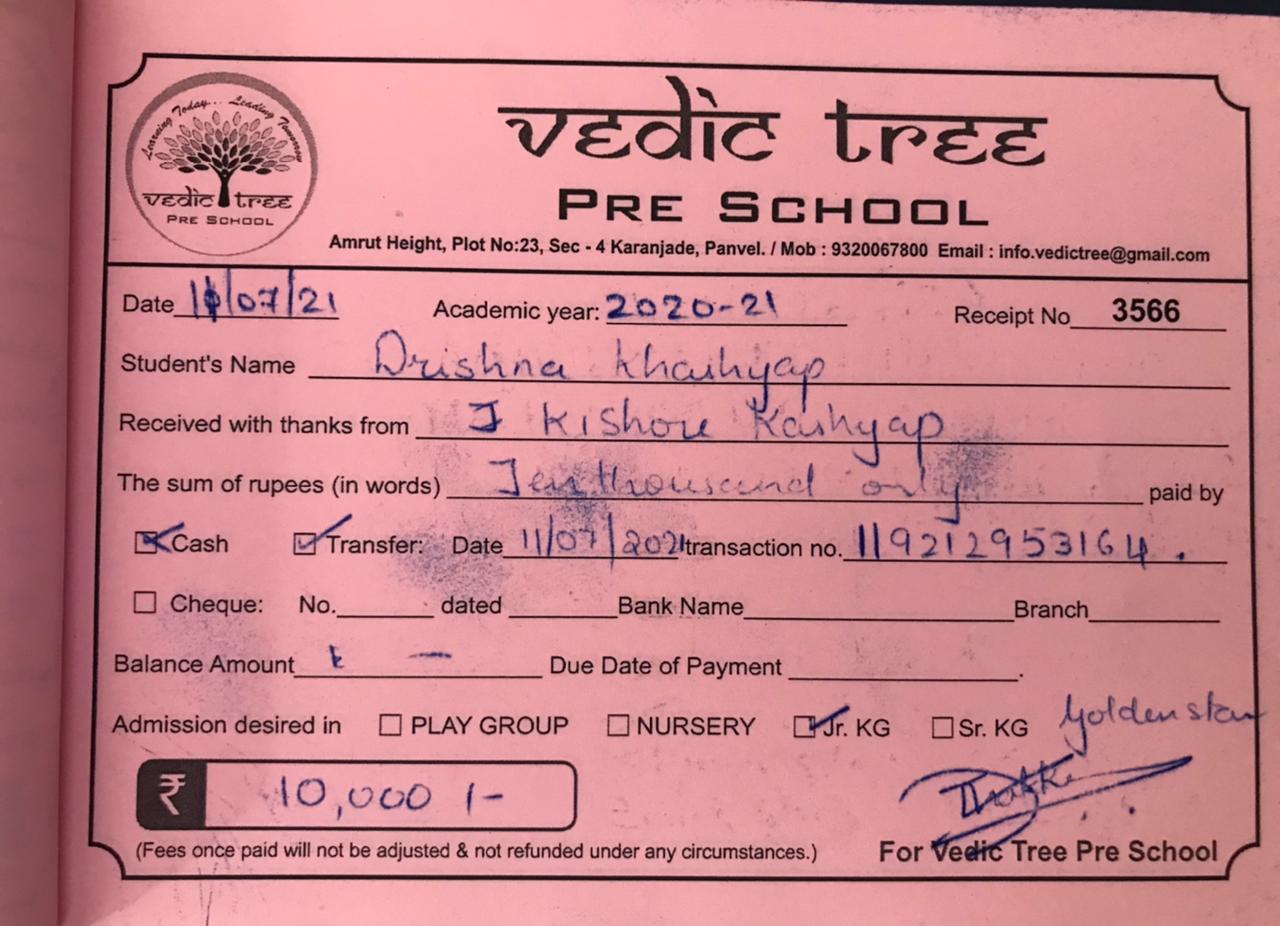 Learning Today... Leading Tomorrow
vedic tree
PRE SCHOOL
vedic tree
PRE SCHOOL
Amrut Height, Plot No:23, Sec - 4 Karanjade, Panvel. / Mob : 9320067800 Email : info.vedictree@gmail.com
Date 11/07/21 Academic year: 2020-21 Receipt No 3566
Student's Name Drishna Khashyap
Received with thanks from J Kishore Kashyap
The sum of rupees (in words) Ten thousand only paid by
Cash Transfer: Date 11/07/2021 transaction no. 119212953164.
Cheque: No. dated Bank Name Branch
Balance Amount - Due Date of Payment .
Admission desired in PLAY GROUP NURSERY Jr. KG Sr. KG Golden star
₹ 10,000 /-
(Fees once paid will not be adjusted & not refunded under any circumstances.) For Vedic Tree Pre School